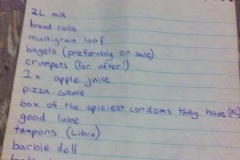 2L milk
bread rolls
multigrain loaf
bagels (preferably on sale)
crumpets (for after!)
2 x apple juice
pizza sauce
box of the spiciest condoms they have
good lube
tampons (Libra)
barbie doll